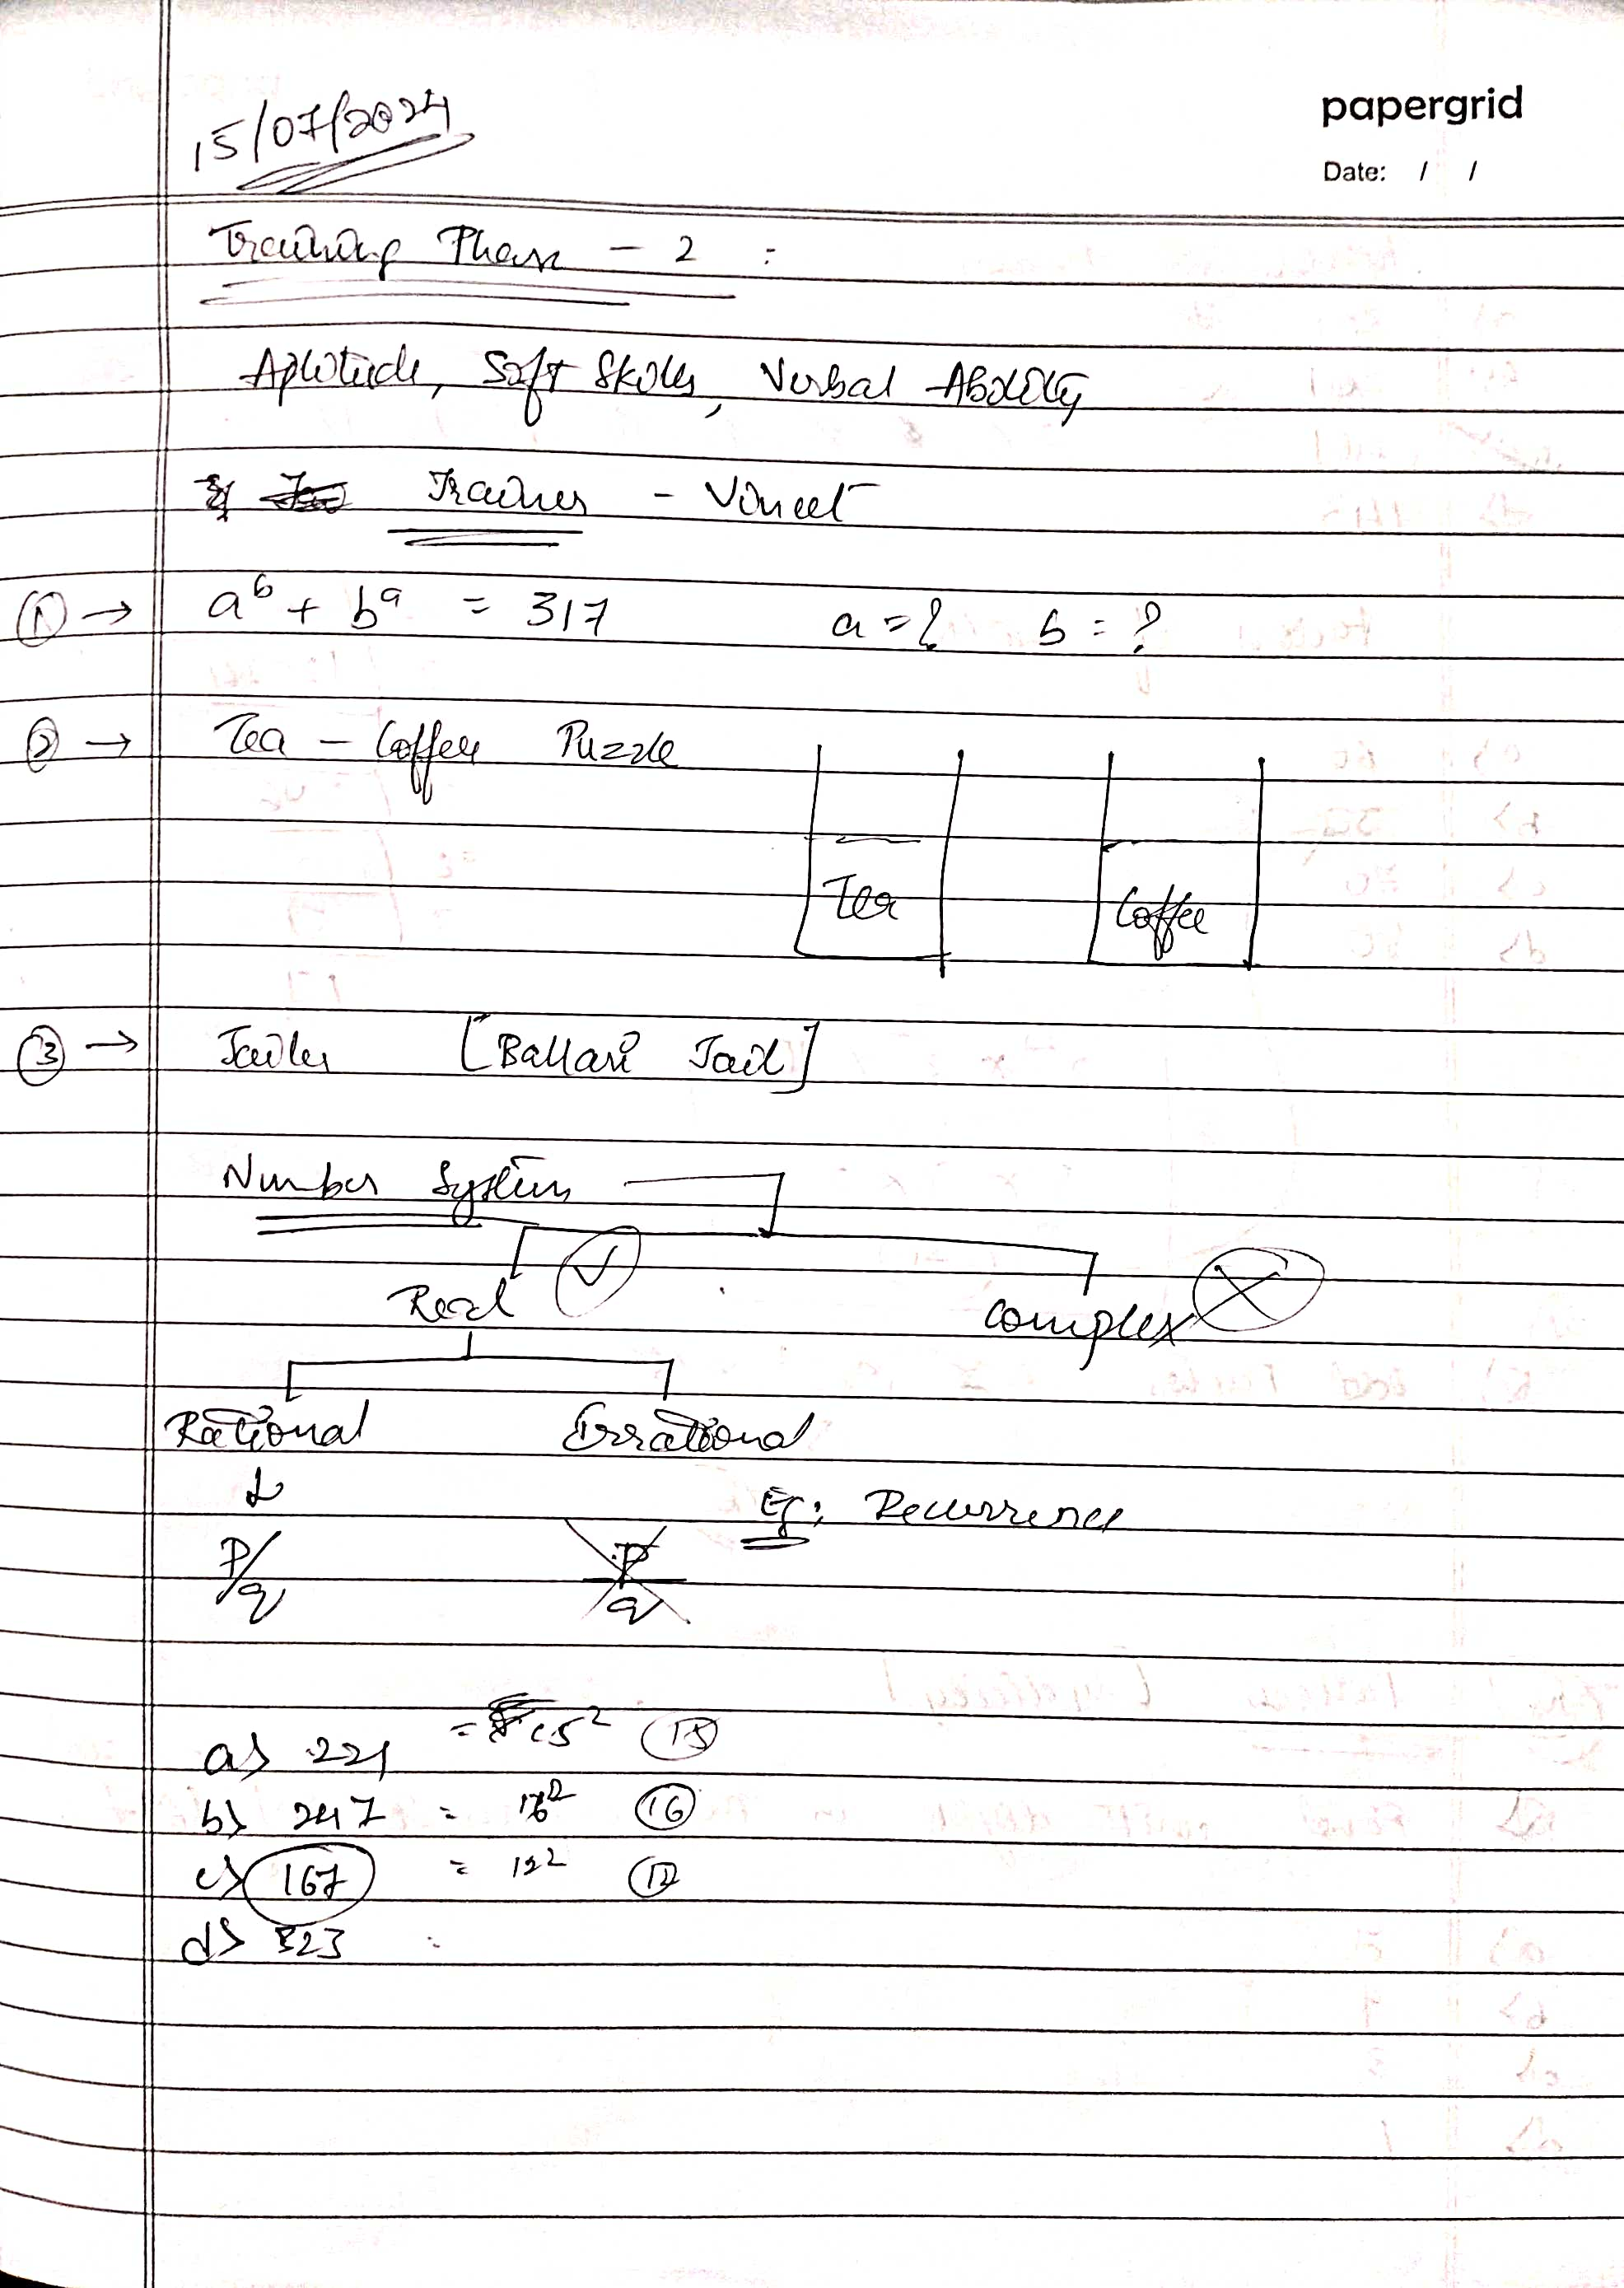 papergrid
Date: / /
15/07/2024
Training Phase - 2 :
Aptitude, Soft Skills, Verbal Ability
Trainer - Vineet
① → a^b + b^a = 317 a = ? b = ?
② → Tea - Coffee Puzzle
Tea Coffee
③ → Jailer [Ballari Jail]
Number System
Real ✓ Complex ✗
Rational Irrational
↓ Eg: Recurrence
P/q P/q
a) 221 = 15² ⑮
b) 247 = 16² ⑯
c) 167 = 12² ⑫
d) 323 :